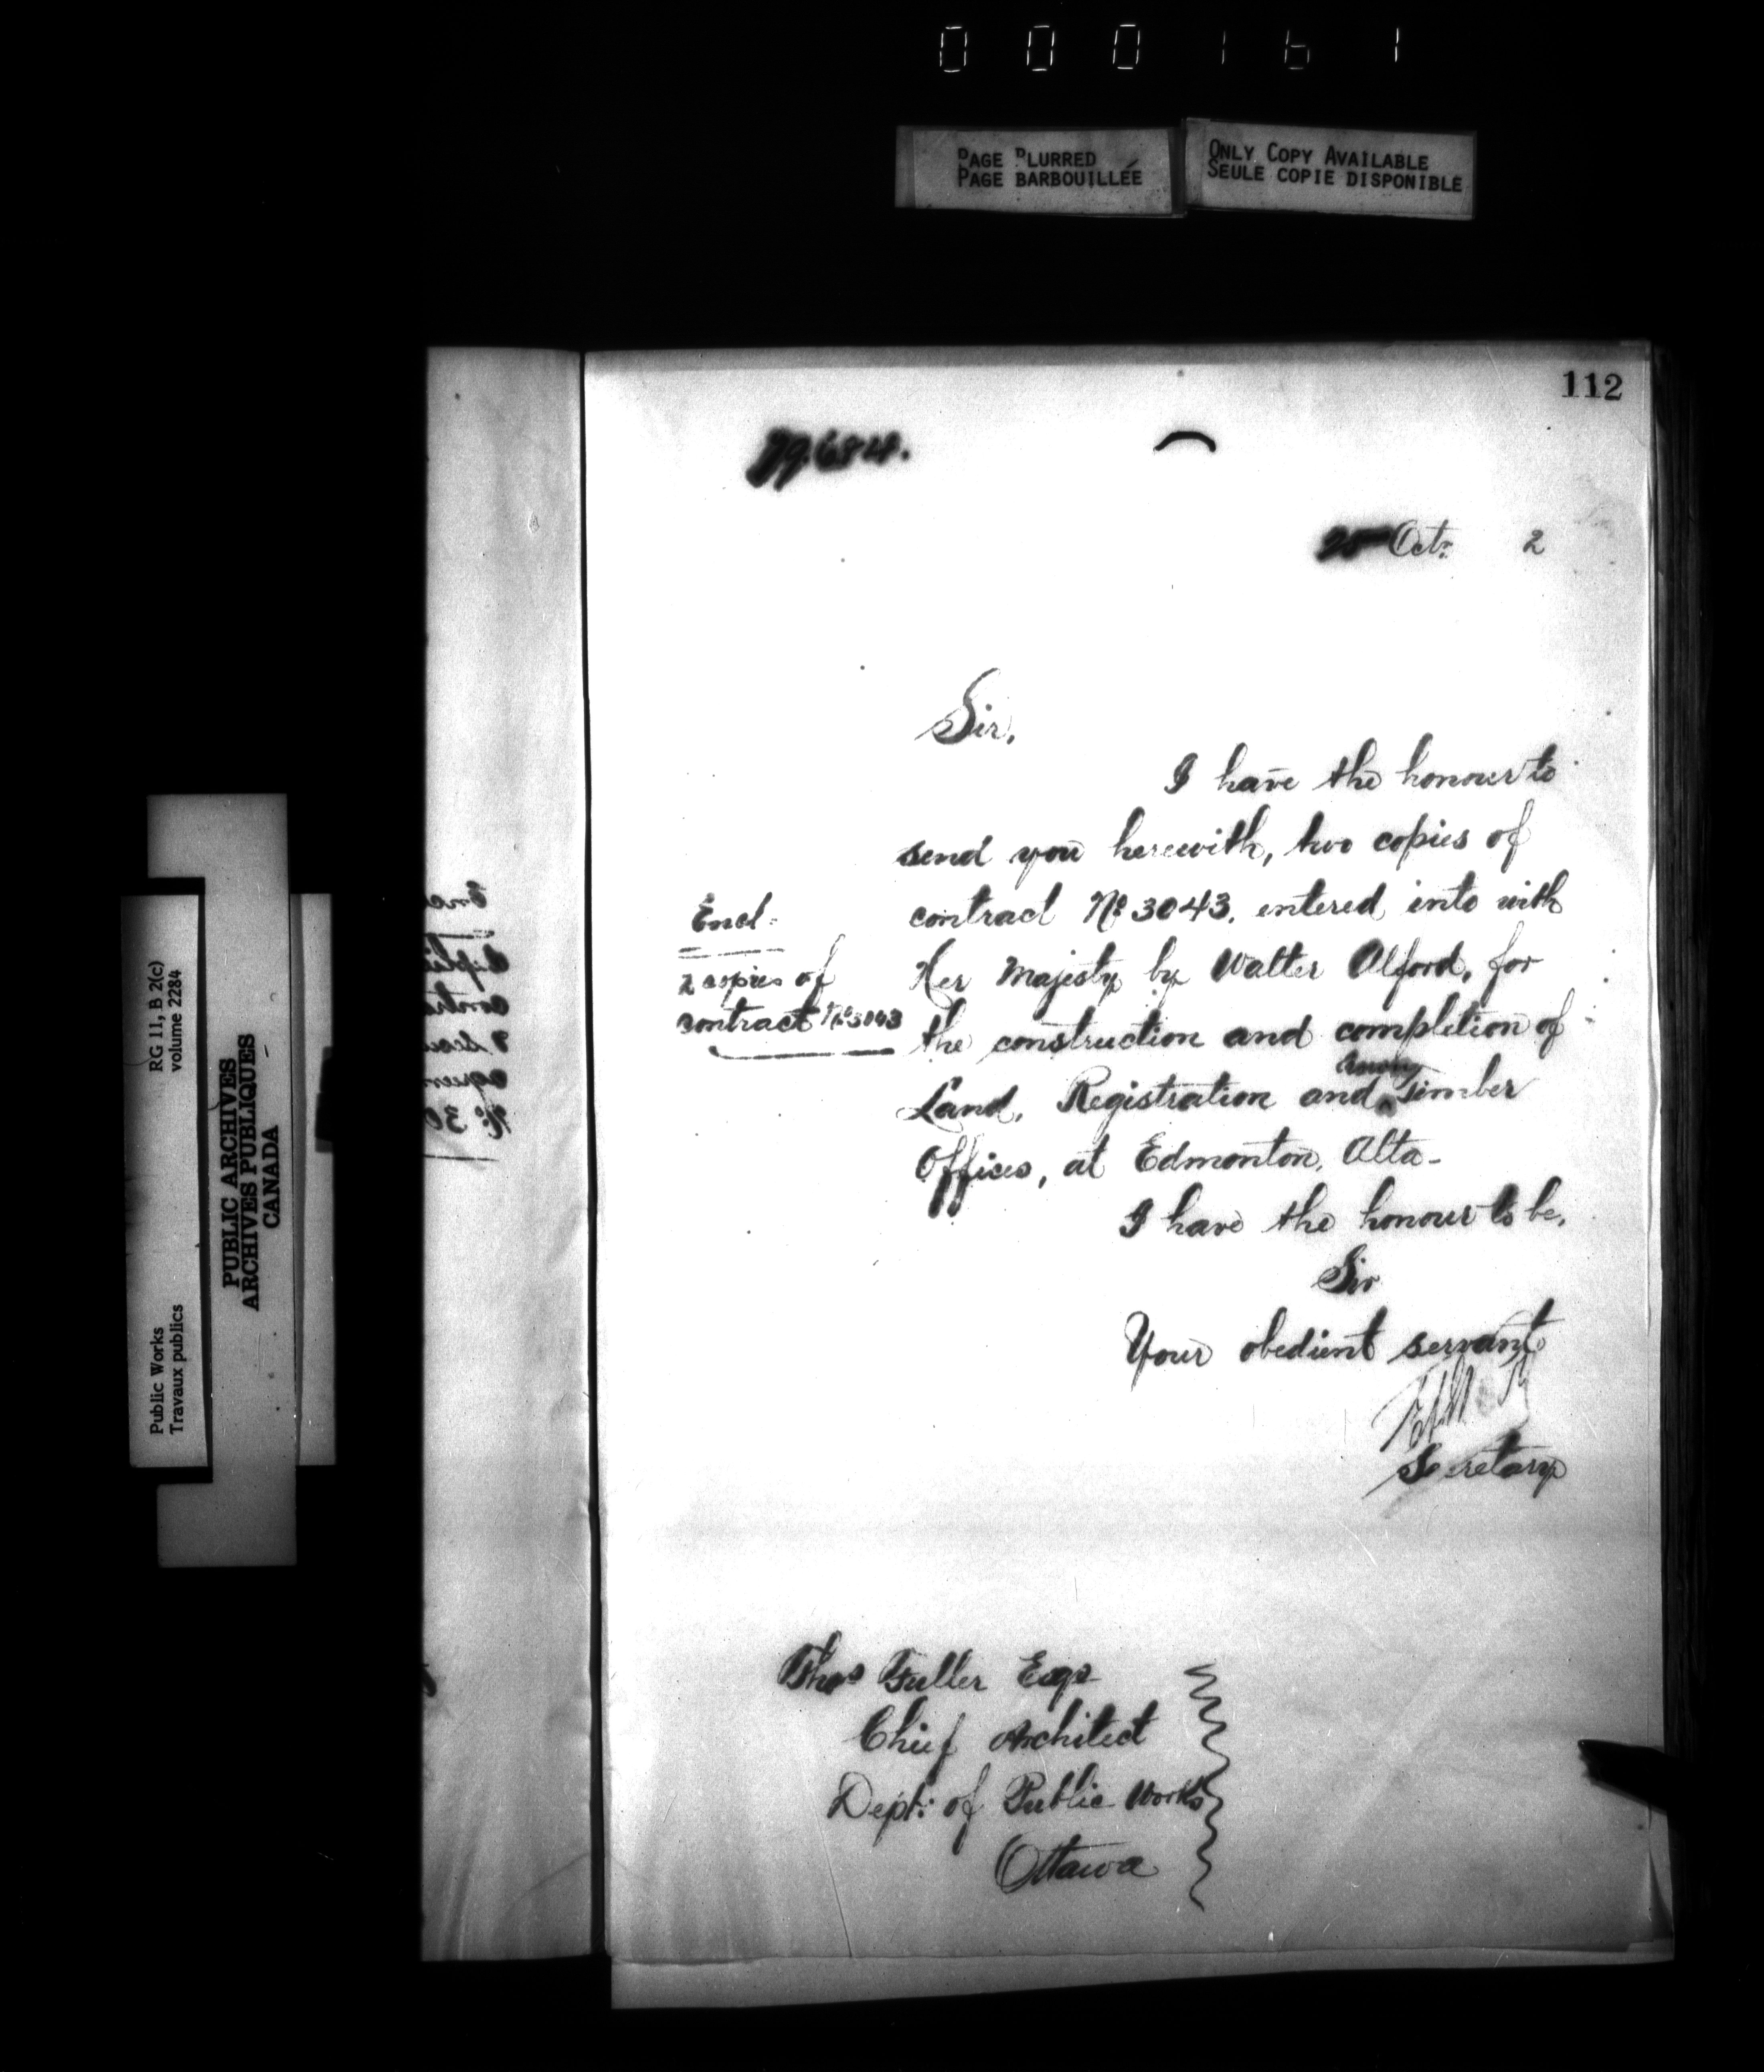 000161
PAGE BLURRED
PAGE BARBOUILLÉE
ONLY COPY AVAILABLE
SEULE COPIE DISPONIBLE
112
25 Oct: 2
Sir,
I have the honour to
send you herewith, two copies of
contract No 3043, entered into with
Her Majesty by Walter Alford, for
the construction and completion of
Land, Registration and Crown Timber
Offices, at Edmonton, Alta-
Encl:
2 copies of
contract No 3043
I have the honour to be,
Sir
Your obedient servant
Secretary
Thos Fuller Esqr
Chief Architect
Dept: of Public Works
Ottawa
RG 11, B 2(c)
volume 2284
Public Works
Travaux publics
PUBLIC ARCHIVES
ARCHIVES PUBLIQUES
CANADA